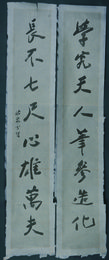 學究天人筆參造化
長不七尺心雄萬夫